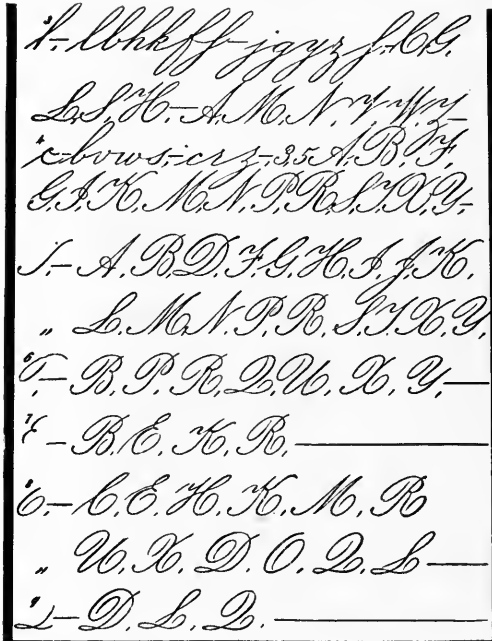 l.— l b h k f f — j g y z f.— C. G.
L. S. H.— A. M. N. Y. W. Y—
c-bows,-crz-,35 A. B. F.
G. I. K. M. N. P. R. S. T. X. Y-
— A. B. D. F. G. H. I. J. K.
„ L. M. N. P. R. S. T. X. Y.
— B. P. R. Q. U. X. Y.—
— B. E. K. R.—
— C. E. H. K. M. R
„ U. X. D. O. Q. L—
— D. L. Q.—